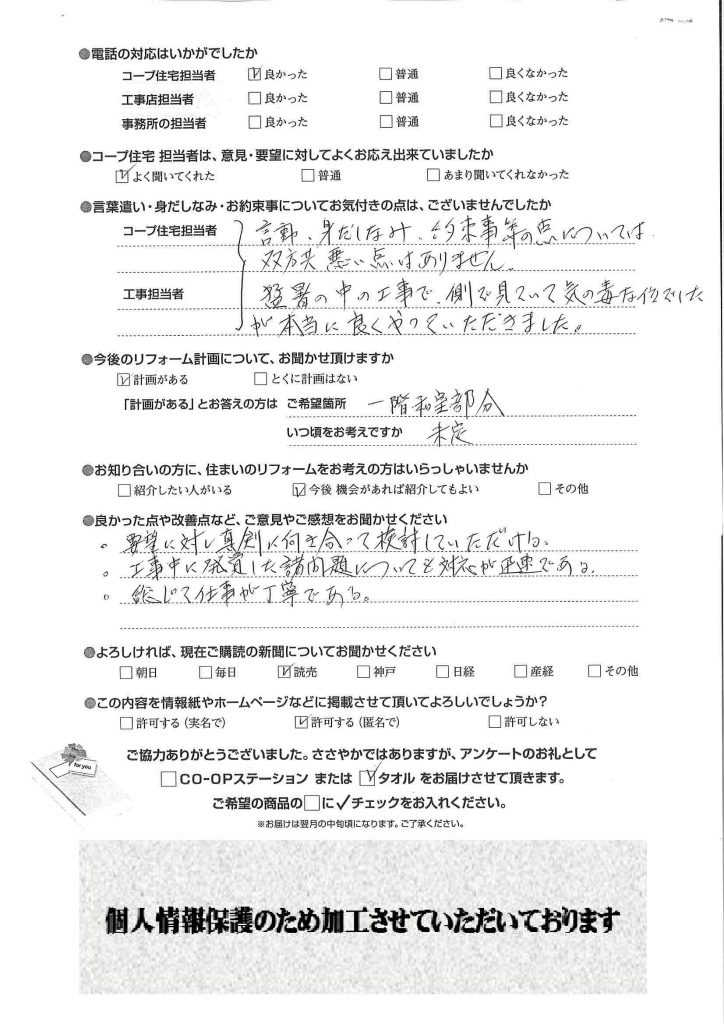 ●電話の対応はいかがでしたか
コープ住宅担当者 ☑良かった □普通 □良くなかった
工事店担当者 □良かった □普通 □良くなかった
事務所の担当者 □良かった □普通 □良くなかった
●コープ住宅 担当者は、意見・要望に対してよくお応え出来ていましたか
☑よく聞いてくれた □普通 □あまり聞いてくれなかった
●言葉遣い・身だしなみ・お約束事についてお気付きの点は、ございませんでしたか
コープ住宅担当者 言動、身だしなみ、約束事等の点については
双方共悪い点はありません。
工事担当者 猛暑の中の工事で、側で見ていて気の毒な位でした
が本当に良くやっていただきました。
●今後のリフォーム計画について、お聞かせ頂けますか
☑計画がある □とくに計画はない
「計画がある」とお答えの方は ご希望箇所 一階和室部分
いつ頃をお考えですか 未定
●お知り合いの方に、住まいのリフォームをお考えの方はいらっしゃいませんか
□紹介したい人がいる ☑今後 機会があれば紹介してもよい □その他
●良かった点や改善点など、ご意見やご感想をお聞かせください
。要望に対し真剣に向き合って検討していただける。
。工事中に発覚した諸問題についても対応が迅速である。
。総じて仕事が丁寧である。
●よろしければ、現在ご購読の新聞についてお聞かせください
□朝日 □毎日 ☑読売 □神戸 □日経 □産経 □その他
●この内容を情報紙やホームページなどに掲載させて頂いてよろしいでしょうか?
□許可する(実名で) ☑許可する(匿名で) □許可しない
for you
ご協力ありがとうございました。ささやかではありますが、アンケートのお礼として
□CO-OPステーション または ☑タオル をお届けさせて頂きます。
ご希望の商品の□に✓チェックをお入れください。
※お届けは翌月の中旬頃になります。ご了承ください。
個人情報保護のため加工させていただいております